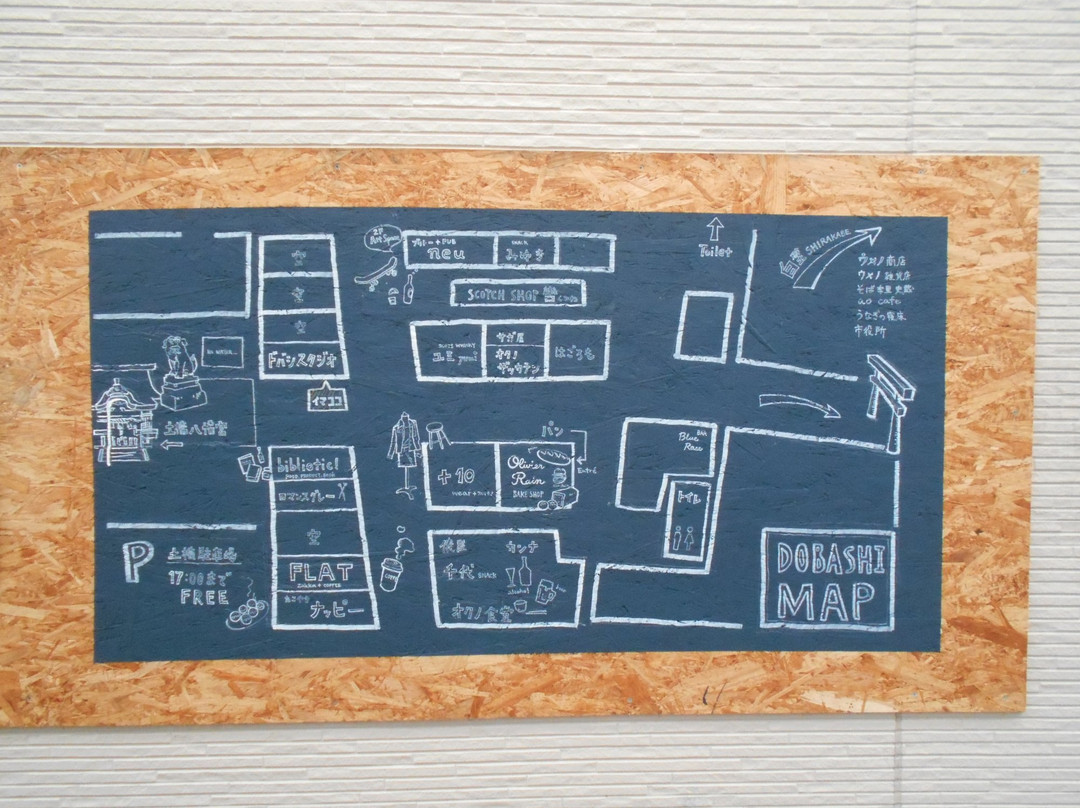 空
空
空
ドバシスタジオ
イマココ
土橋八幡宮
2F
Art Space
カレー+PUB
neu
SNACK
みゆき
SCOTCH SHOP
ユミ yumi
サガ屋
オクノ
ザッカテン
はごろも
Toilet
白雲 SHIRAKABE
ウオノ商店
ウメノ雑貨店
ao cafe
うなぎの寝床
市役所
bibliotic!
ロマンスグレー
空
FLAT
CHICKEN + COFFEE
たこやき
ナッピー
COFFEE
+10
wear + knits
パン
Olivier
Rain
BAKE SHOP
BAR
Blue
Rose
トイレ
カンナ
千代 SNACK
alcohol
オクノ食堂
P
土橋駐車場
17:00まで
FREE
DOBASHI
MAP